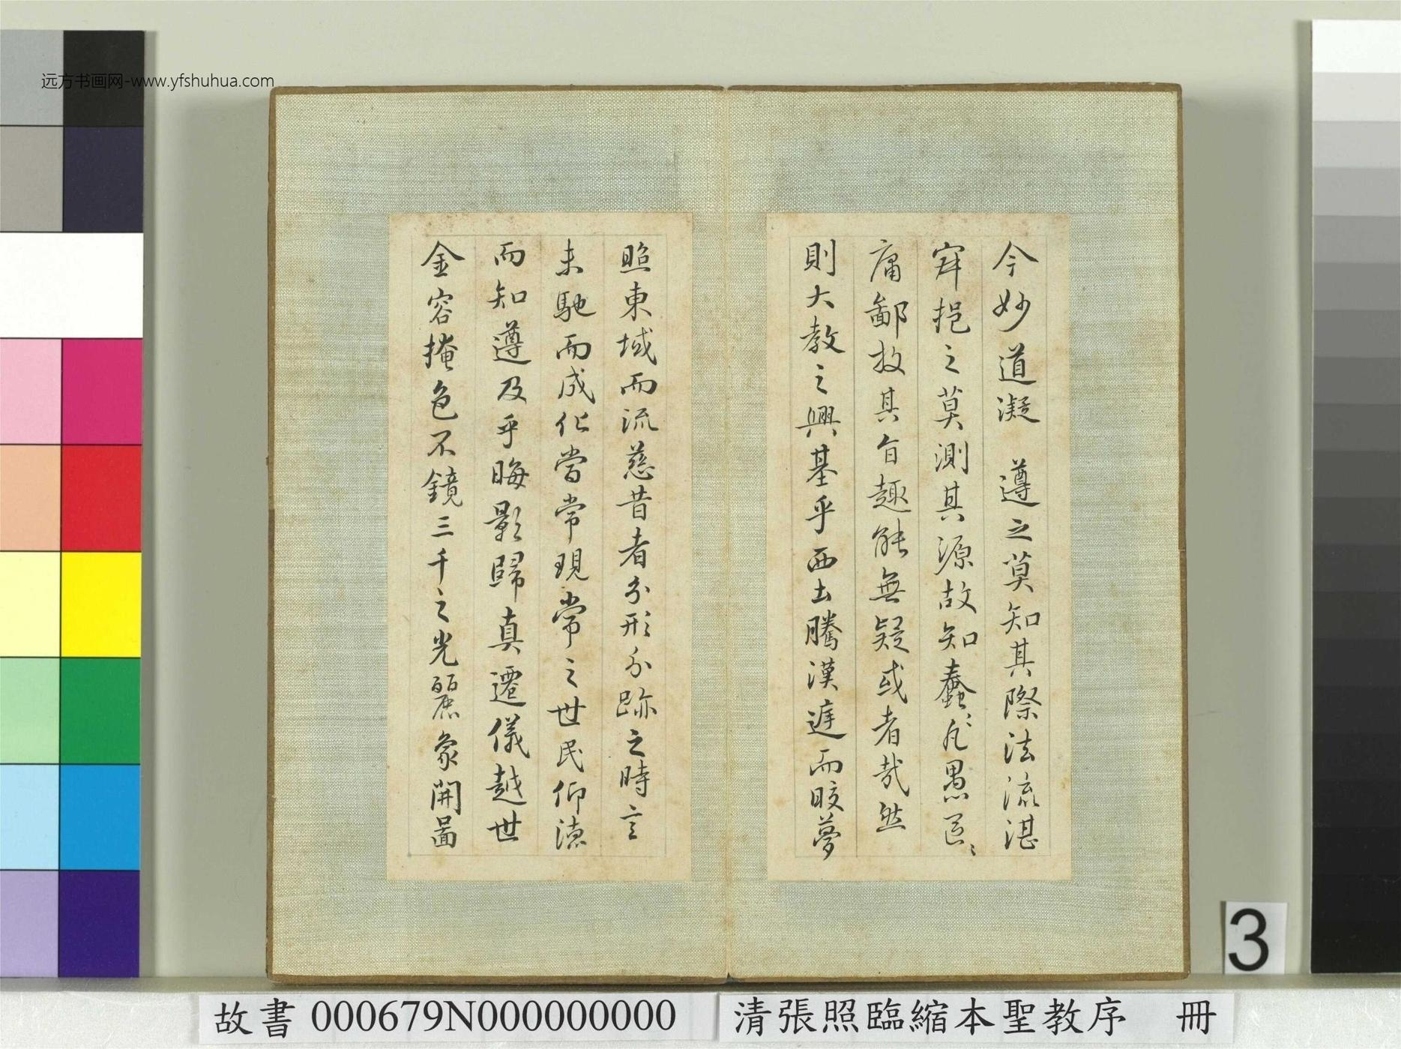 远方书画网-www.yfshuhua.com
今妙道凝　遵之莫知其際法流湛
寂挹之莫測其源故知蠢〻凡愚區〻
庸鄙投其旨趣能無疑或者哉然
則大教之興基乎西土騰漢庭而皎夢
照東域而流慈昔者分形分跡之時言
未馳而成化當常現常之世民仰德
而知遵及乎晦影歸真遷儀越世
金容掩色不鏡三千之光麗象開圖
3
故書 000679N000000000
清張照臨縮本聖教序　冊